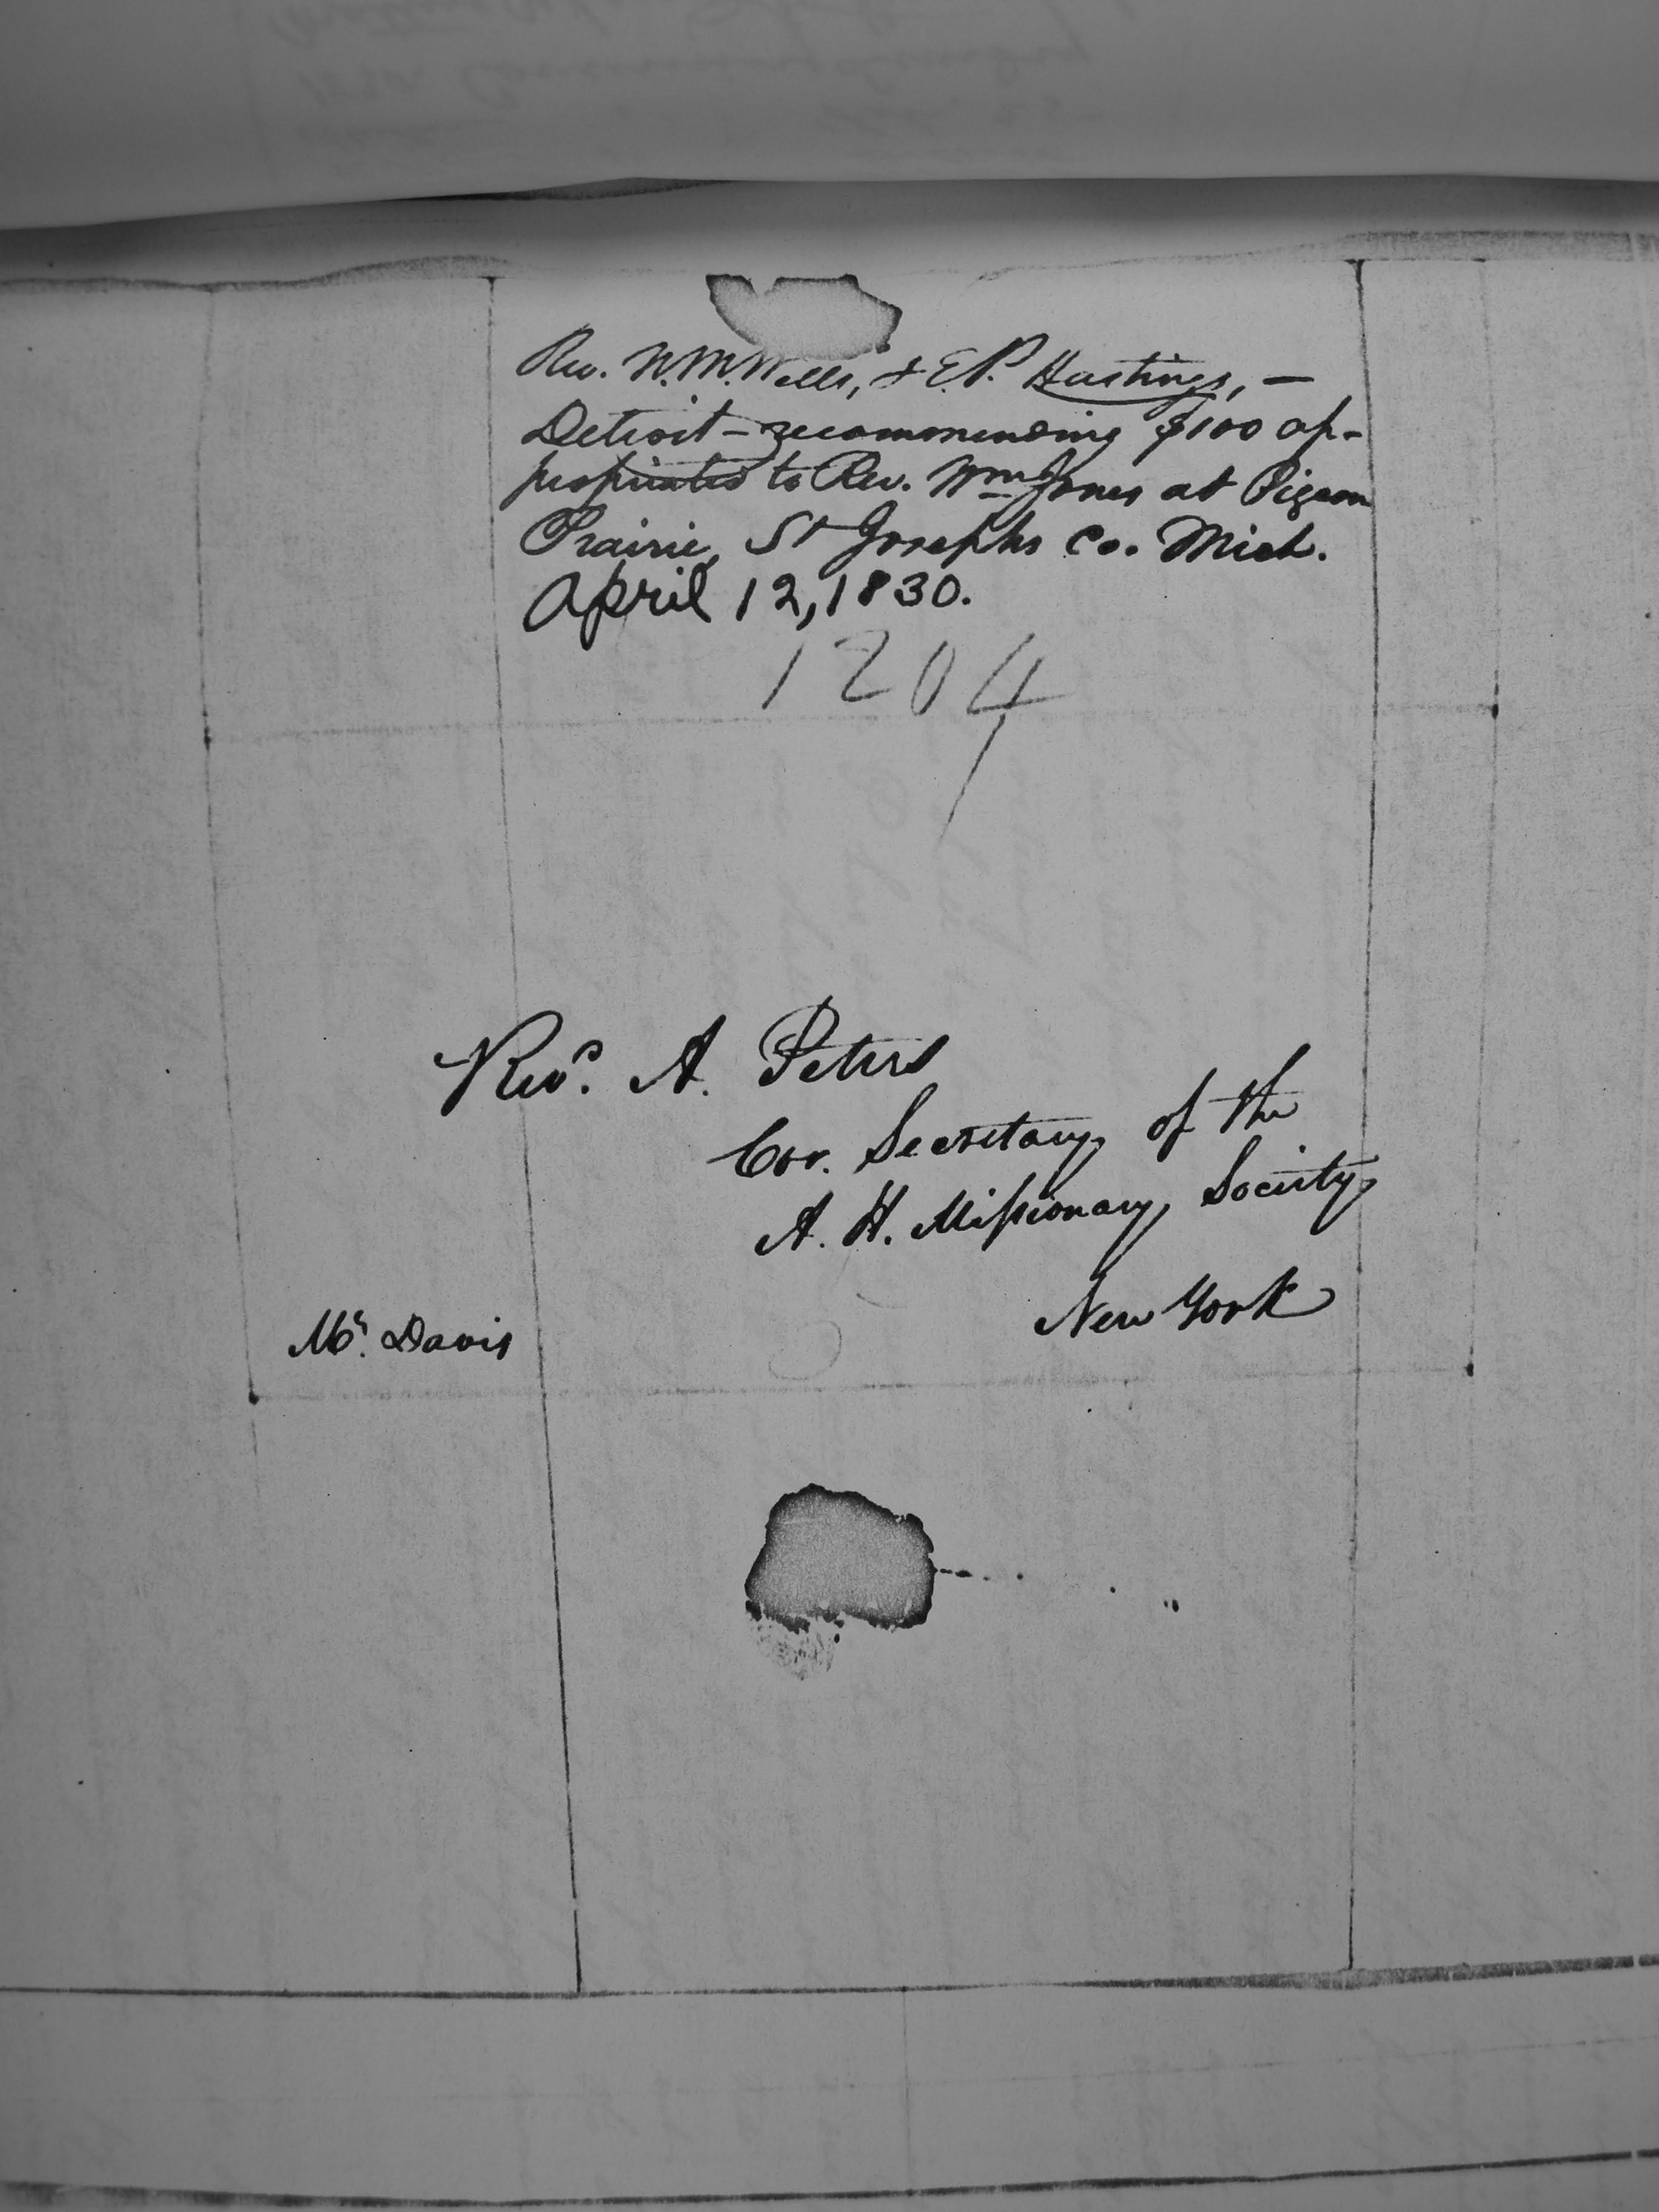 Rev. N. M. Wells, & E. P. Hastings, —
Detroit – recommending $100 ap-
propriated to Rev. Wm Jones at Pigeon
Prairie, St Josephs Co. Mich.
April 12, 1830.
1204
Revd. A. Peters
Cor. Secretary of the
A. H. Missionary Society
New York
Mr. Davis